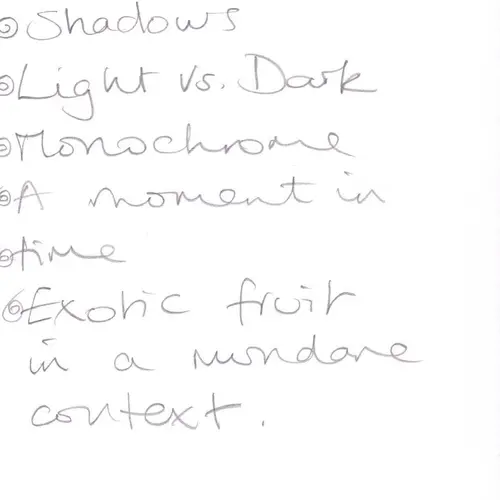 Shadows
Light vs. Dark
Monochrome
A moment in
time
Exotic fruit
in a mundane
context.